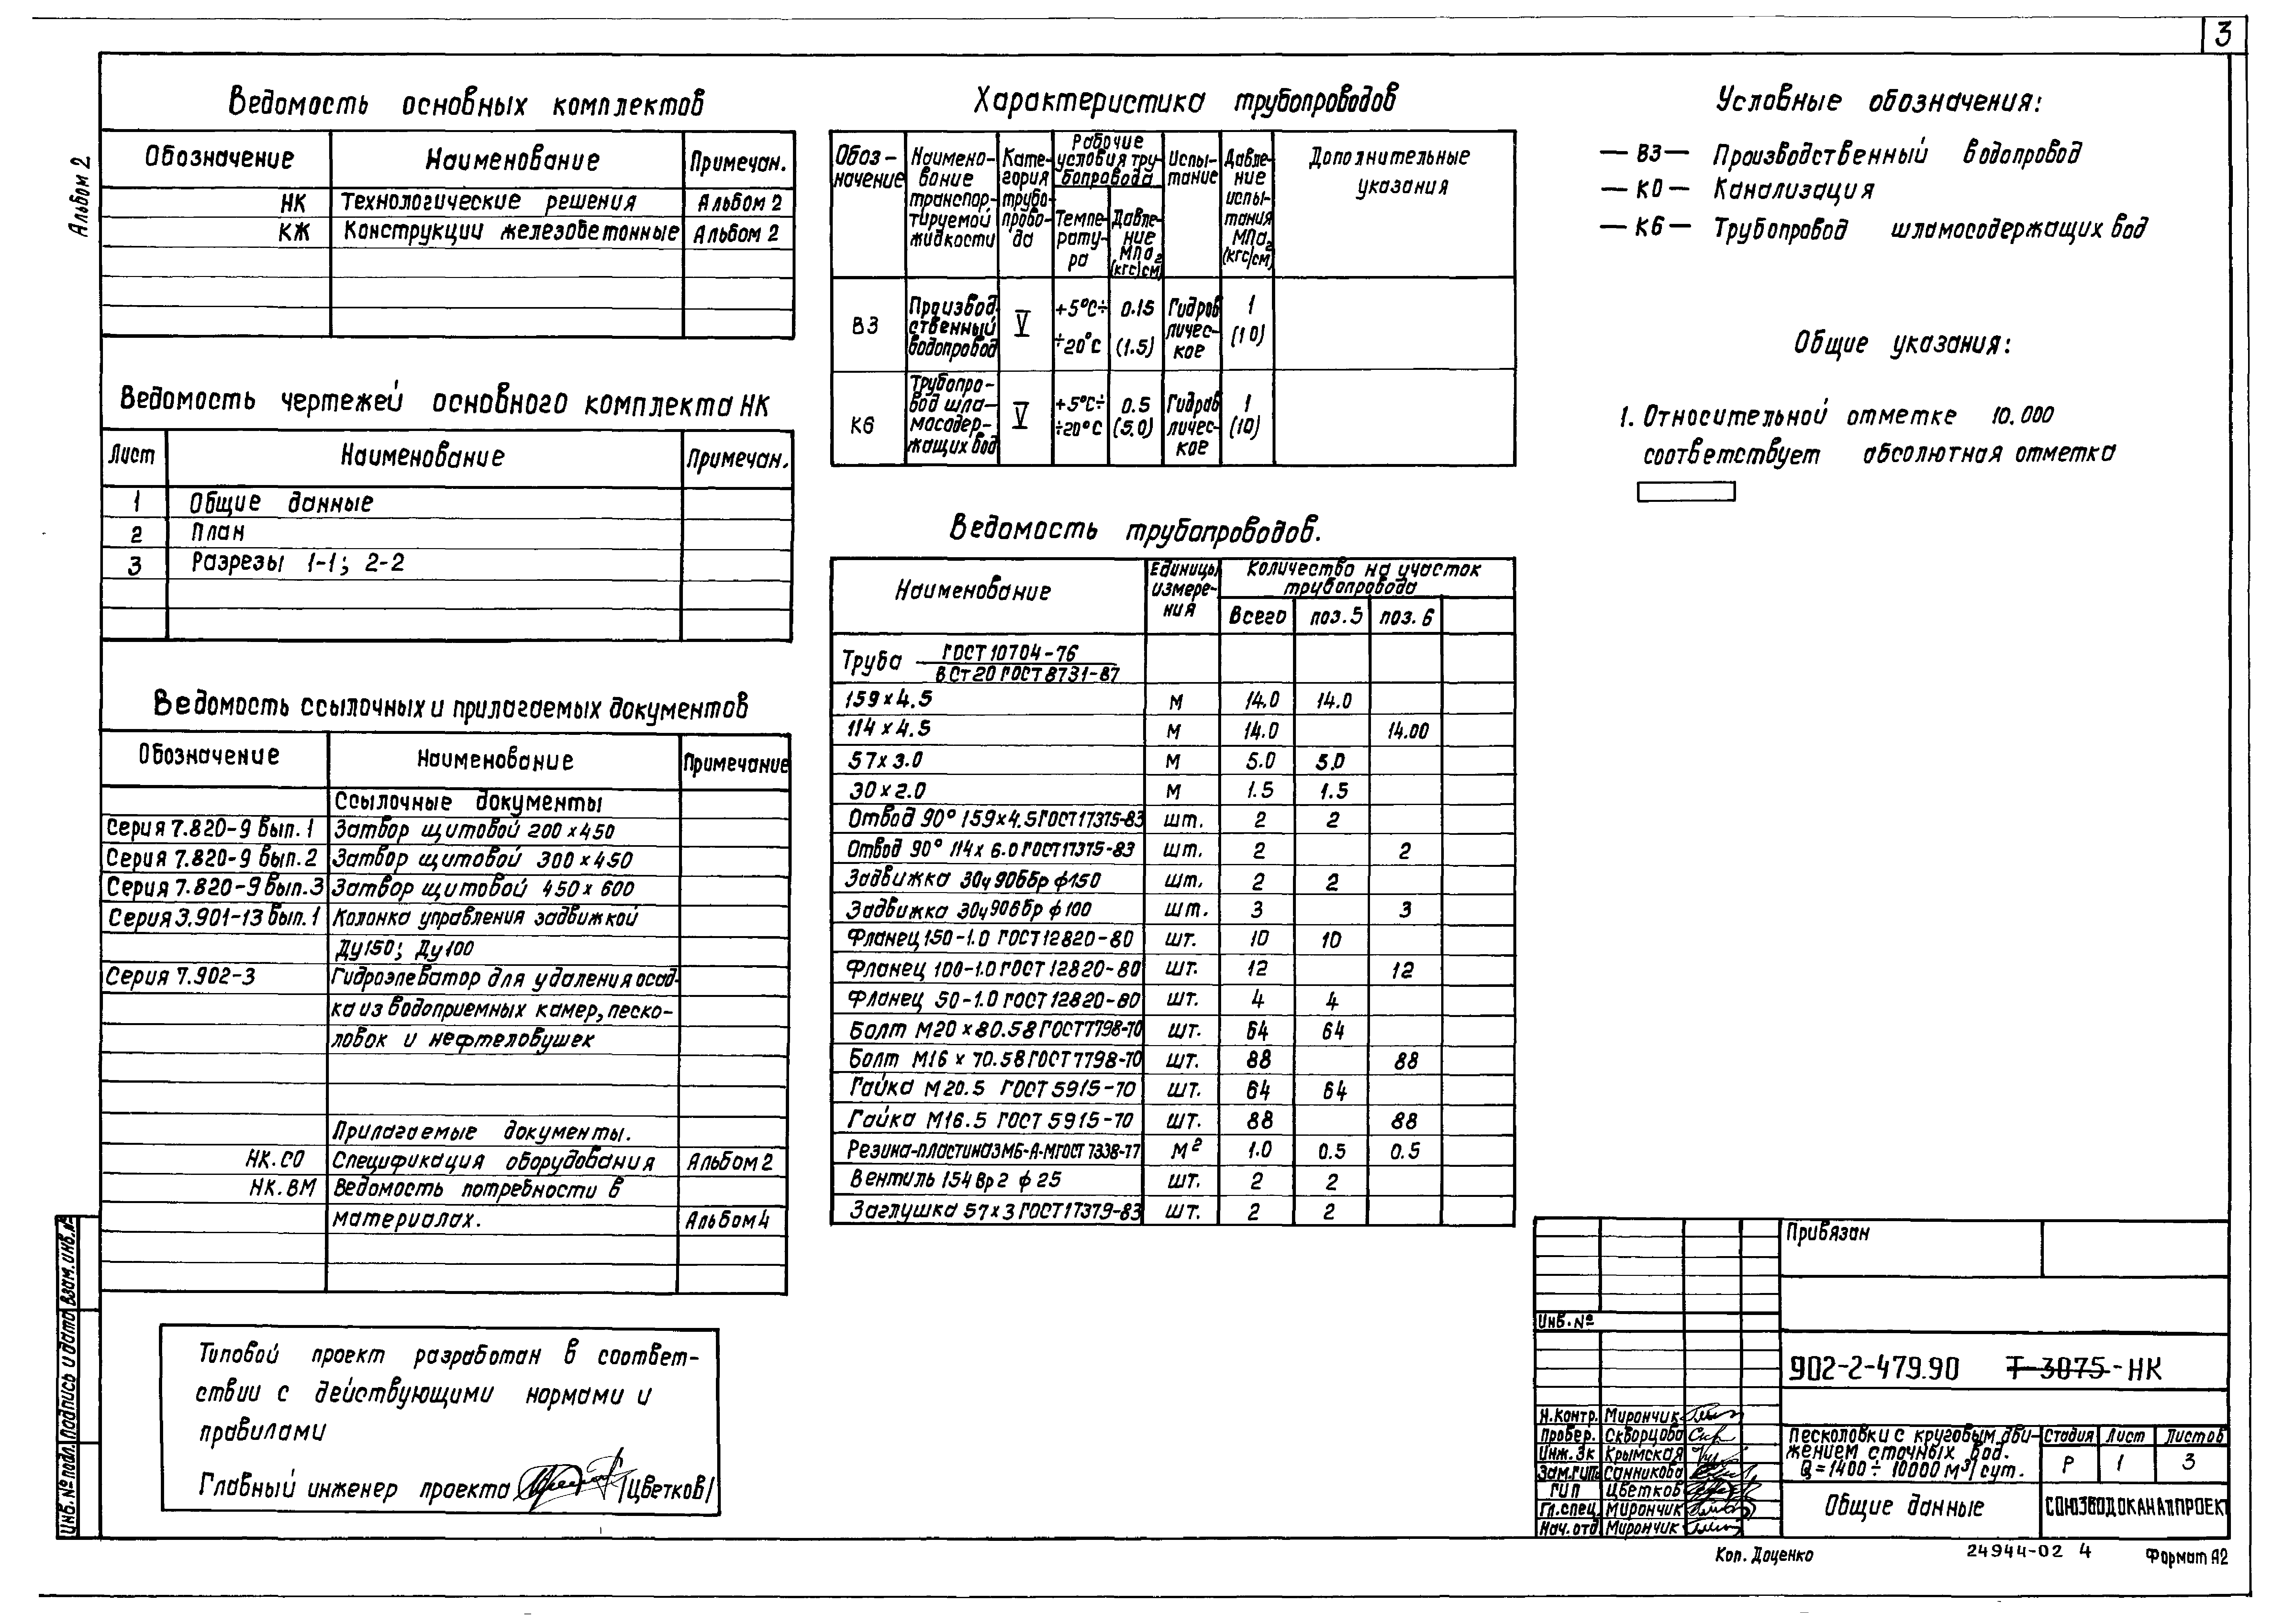 3
Альбом 2
Ведомость основных комплектов
Обозначение Наименование Примечан.
НК Технологические решения Альбом 2
КЖ Конструкции железобетонные Альбом 2
Ведомость чертежей основного комплекта НК
Лист Наименование Примечан.
1 Общие данные
2 План
3 Разрезы 1-1; 2-2
Ведомость ссылочных и прилагаемых документов
Обозначение Наименование Примечание
Ссылочные документы
Серия 7.820-9 вып. 1 Затвор щитовой 200 х 450
Серия 7.820-9 вып. 2 Затвор щитовой 300 х 450
Серия 7.820-9 вып. 3 Затвор щитовой 450 х 600
Серия 3.901-13 вып. 1 Колонка управления задвижкой
Ду150; Ду100
Серия 7.902-3 Гидроэлеватор для удаления осад-
ка из водоприемных камер, песко-
ловок и нефтеловушек
Прилагаемые документы.
НК.СО Спецификация оборудования Альбом 2
НК.ВМ Ведомость потребности в
материалах. Альбом 4
Типовой проект разработан в соответ-
ствии с действующими нормами и
правилами
Главный инженер проекта /Цветков/
Характеристика трубопроводов
Обоз-
начение
Наимено-
вание
транспор-
тируемой
жидкости
Кате-
гория
трубо-
прово-
да
Рабочие
условия тру-
бопровода
Темпе-
рату-
ра
Давле-
ние
МПа
(кгс/см²)
Испы-
тание
Давле-
ние
испы-
тания
МПа
(кгс/см²)
Дополнительные
указания
В3
Производ-
ственный
водопровод
V
+5°С÷
÷20°С
0.15
(1.5)
Гидров
личес-
кое
1
(10)
К6
Трубопро-
вод шла-
мосодер-
жащих вод
V
+5°С÷
÷20°С
0.5
(5.0)
Гидрав
личес-
кое
1
(10)
Ведомость трубопроводов.
Наименование
Единицы
измере-
ния
Количество на участок
трубопровода
Всего поз. 5 поз. 6
Труба ГОСТ 10704-76
В Ст 20 ГОСТ 8731-87
159 х 4.5 м 14.0 14.0
114 х 4.5 м 14.0 14.00
57 х 3.0 м 5.0 5.0
30 х 2.0 м 1.5 1.5
Отвод 90° 159х4.5 ГОСТ 17375-83 шт. 2 2
Отвод 90° 114х 6.0 ГОСТ 17375-83 шт. 2 2
Задвижка 30ч906бр ф150 шт. 2 2
Задвижка 30ч906бр ф100 шт. 3 3
Фланец 150-1.0 ГОСТ 12820-80 шт. 10 10
Фланец 100-1.0 ГОСТ 12820-80 шт. 12 12
Фланец 50-1.0 ГОСТ 12820-80 шт. 4 4
Болт М20 х 80.58 ГОСТ 7798-70 шт. 64 64
Болт М16 х 70.58 ГОСТ 7798-70 шт. 88 88
Гайка М20.5 ГОСТ 5915-70 шт. 64 64
Гайка М16.5 ГОСТ 5915-70 шт. 88 88
Резина-пластина 3МБ-А-М ГОСТ 7338-77 м² 1.0 0.5 0.5
Вентиль 154 Вр 2 ф 25 шт. 2 2
Заглушка 57х3 ГОСТ 17379-83 шт. 2 2
Условные обозначения:
— В3 — Производственный водопровод
— К0 — Канализация
— К6 — Трубопровод шламосодержащих вод
Общие указания:
1. Относительной отметке 10.000
соответствует абсолютная отметка
Привязан
Инв. №
902-2-479.90 Т-3075-НК
Н.контр. Мирончик
Провер. Скворцова
Инж. 3к Крымская
Зам.ГИПа Санникова
ГИП Цветков
Гл.спец. Мирончик
Нач.отд. Мирончик
Песколовки с круговым дви-
жением сточных вод.
Q = 1400 ÷ 10000 м³/сут.
Стадия Лист Листов
Р 1 3
Общие данные
СОЮЗВОДОКАНАЛПРОЕКТ
Инв. № подл. Подпись и дата Взам. инв. №
Коп. Доценко
24944-02 4
Формат А2